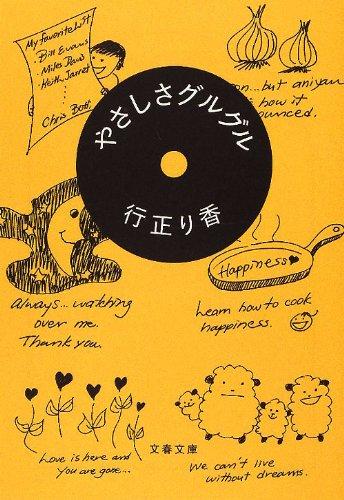 My Favorite List
Bill Evans
・Miles Davi
・Keith Jarret
Chris Botti
やさしさグルグル
行正り香
on...but aniyan
how it
ounced.
Happiness
Always... watching
over me.
Thank you.
Learn how to cook
happiness.
Love is here and
You are gone...
文春文庫
We can't live
without dreams.